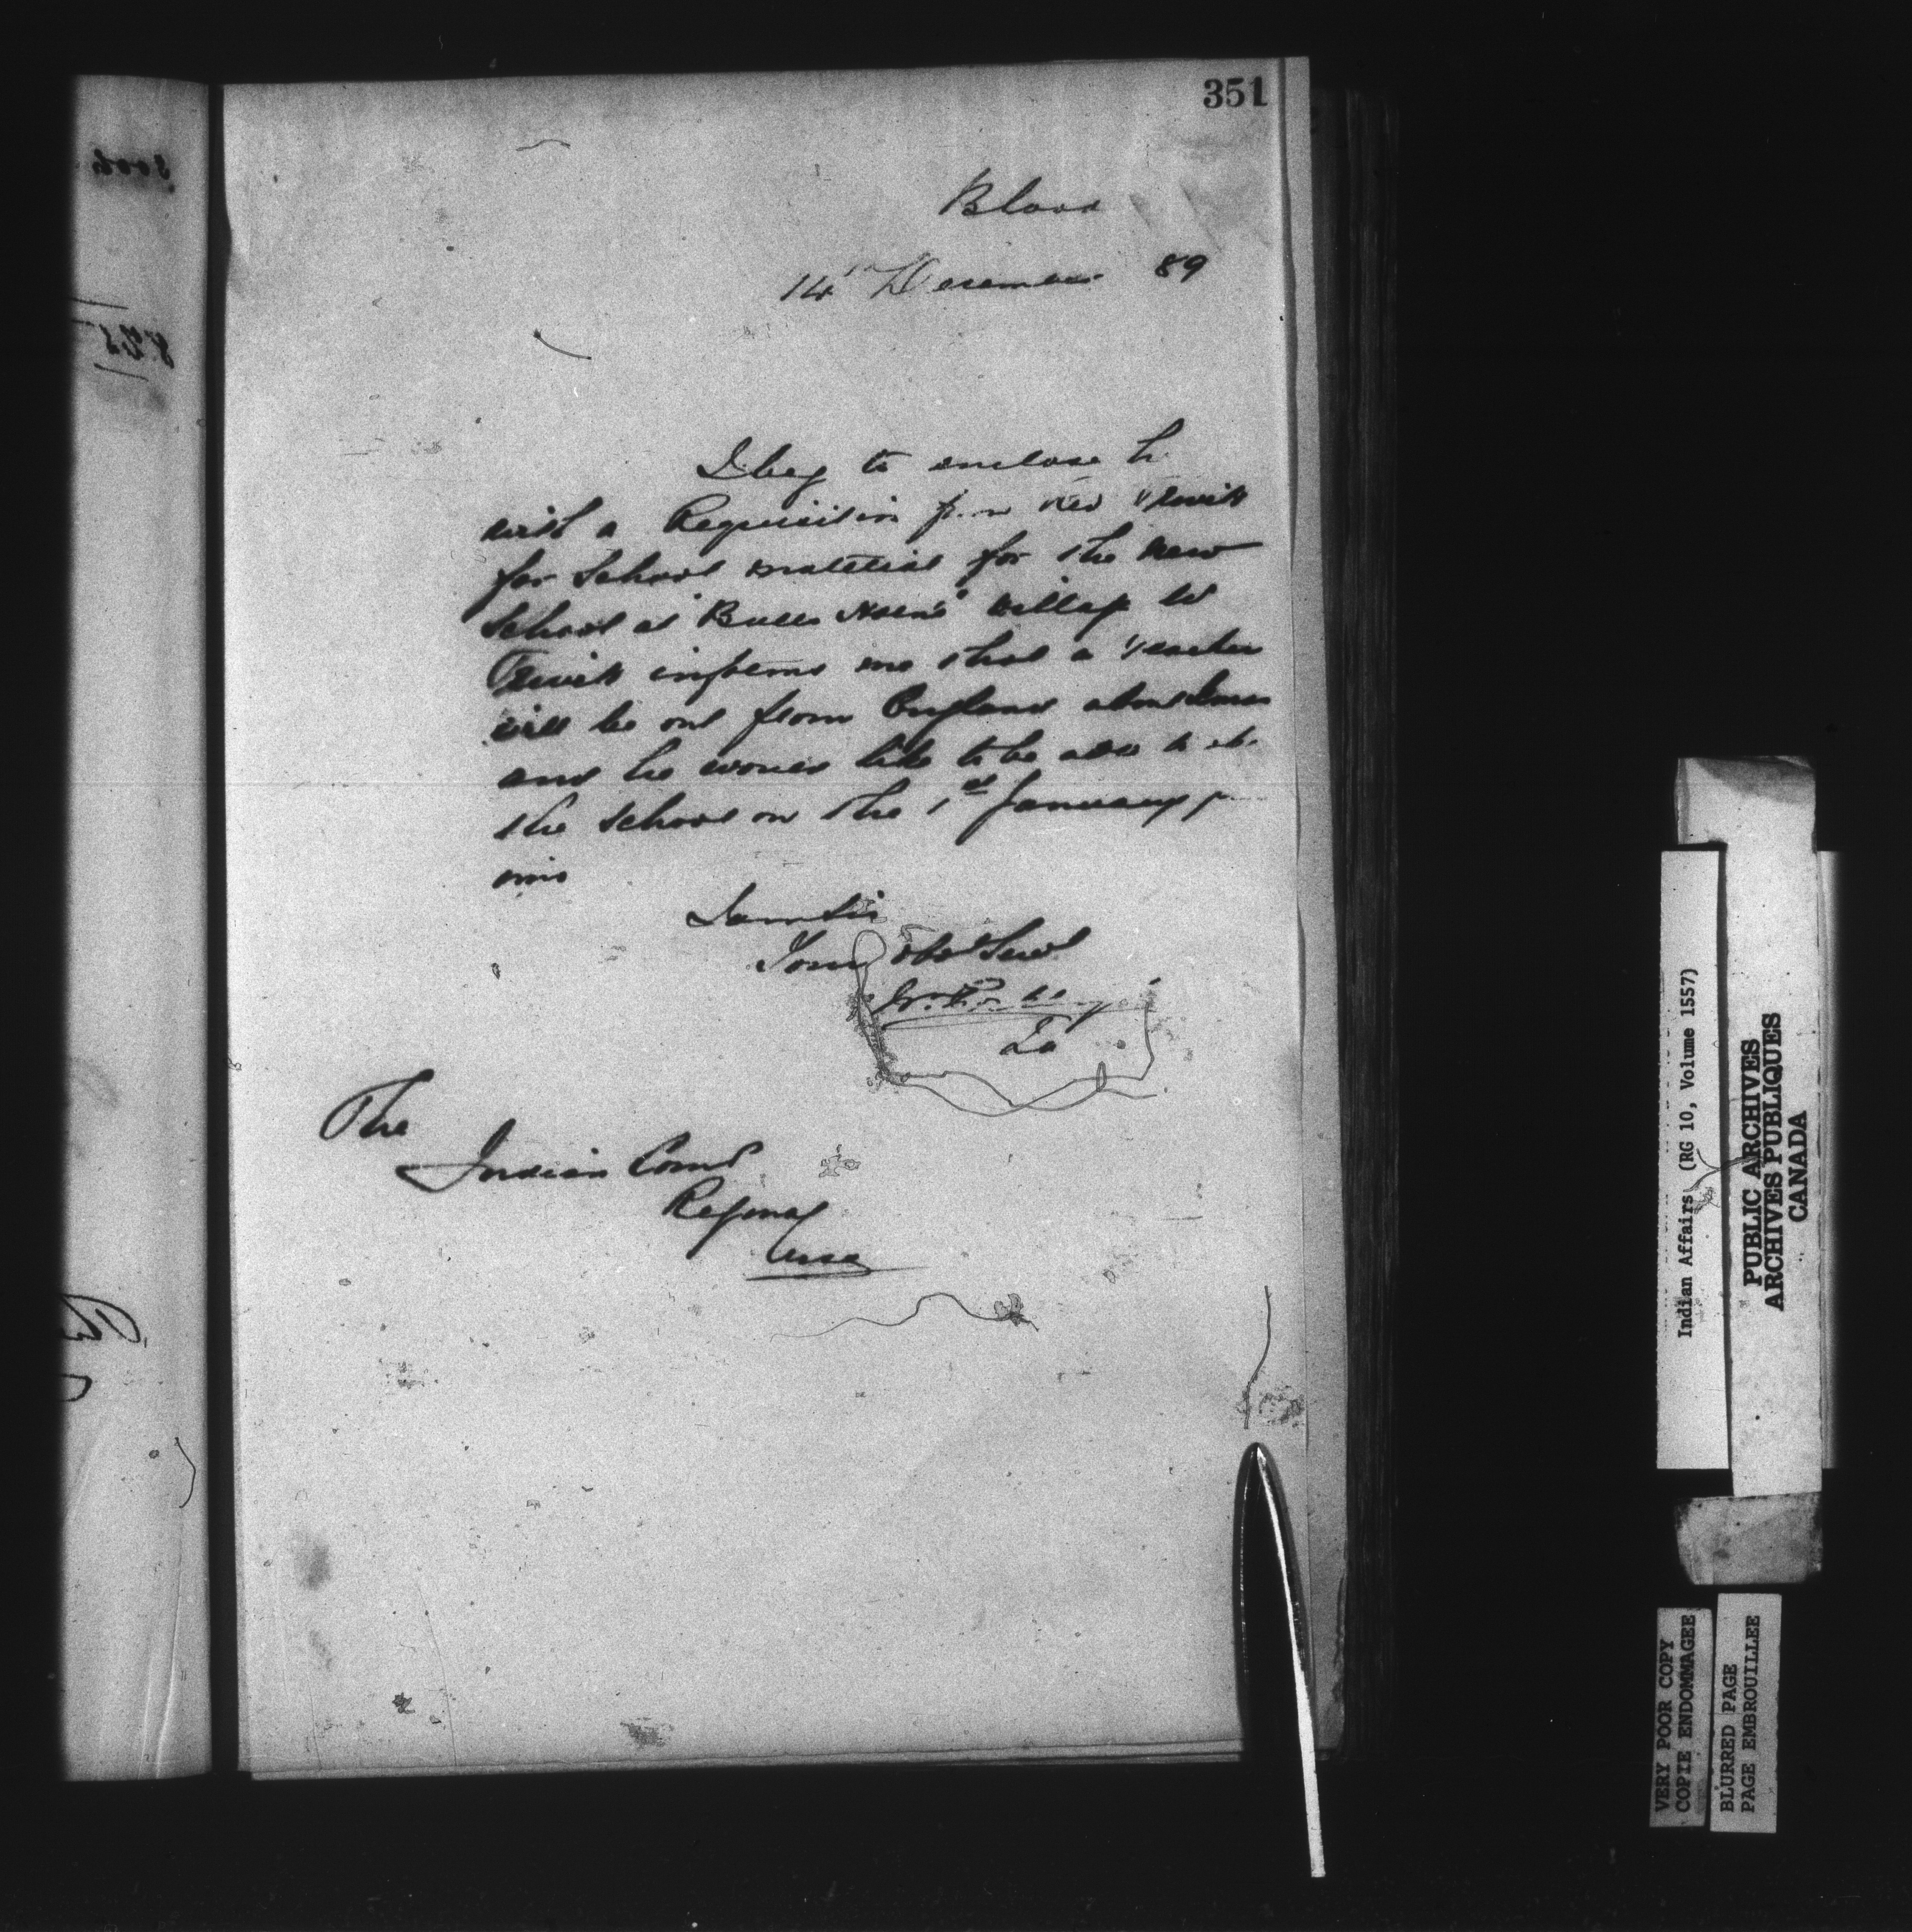 351
Blood
14th December 89
I beg to enclose he
with a Requisition from Rev Trevitt
for School material for the new
School at "Bulls Horn's" Village Mr
Trevitt informs me that a Teacher
will be out from England about Xmas
and he would like to be able to
the School on the 1st January
I am Sir
Your Obt Servt
The
Indian Comr
Regina
Assa
Indian Affairs (RG 10, Volume 1557)
PUBLIC ARCHIVES
ARCHIVES PUBLIQUES
CANADA
VERY POOR COPY
COPIE ENDOMMAGEE
BLURRED PAGE
PAGE EMBROUILLEE